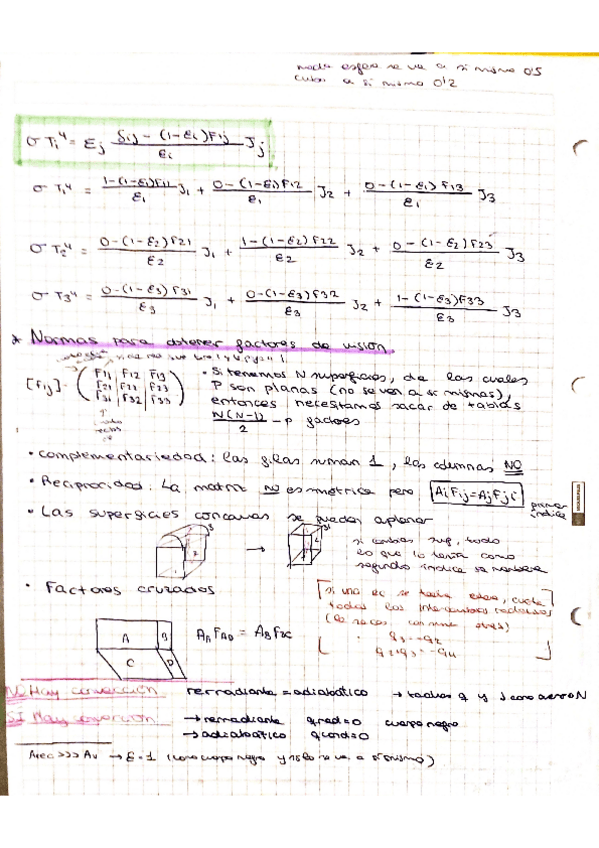 media esfera se ve a si misma 0'5
cubo a si mismo 0'2
σ Ti⁴ = Ej (Sij - (1-Ei)Fij) / Ei Jj
σ T1⁴ = (1-(1-E1)F11) / E1 J1 + (0-(1-E1)F12) / E1 J2 + (0-(1-E1)F13) / E1 J3
σ T2⁴ = (0-(1-E2)F21) / E2 J1 + (1-(1-E2)F22) / E2 J2 + (0-(1-E2)F23) / E2 J3
σ T3⁴ = (0-(1-E3)F31) / E3 J1 + (0-(1-E3)F32) / E3 J2 + (1-(1-E3)F33) / E3 J3
* Normas para obtener factores de visión
[Fij] = ( F11 F12 F13
F21 F22 F23
F31 F32 F33 )
• Si tenemos N superficies, de las cuales
P son planas (no se ven a si mismas),
entonces necesitamos sacar de tablas
N(N-1)/2 - P factores
• Complementariedad: las filas suman 1, las columnas NO
• Reciprocidad: La matriz no es simétrica pero AiFij=AjFji
primer índice
• Las superficies concavas se pueden aplanar
si cambias sup, todo
lo que lo tenía como
segundo indice se mantiene
• Factores cruzados
A B C D
todos los intercambios radiativos
NO Hay convección rerradiante = adiabático → tachas q y J como acero N
SI Hay convección → rerradiante qrad=0 cuerpo negro
→ adiabático qcond=0